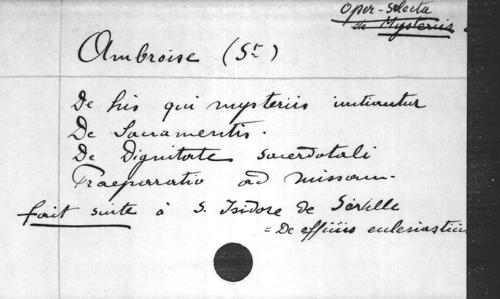 Oper. Selecta
de Mysteriis
Ambroise (St)
De his qui mysteriis initiantur
De Sacramentis.
De Dignitate sacerdotali
Praeparatio ad missam.
fait suite à S. Isidore de Séville
= De officiis ecclesiasticis